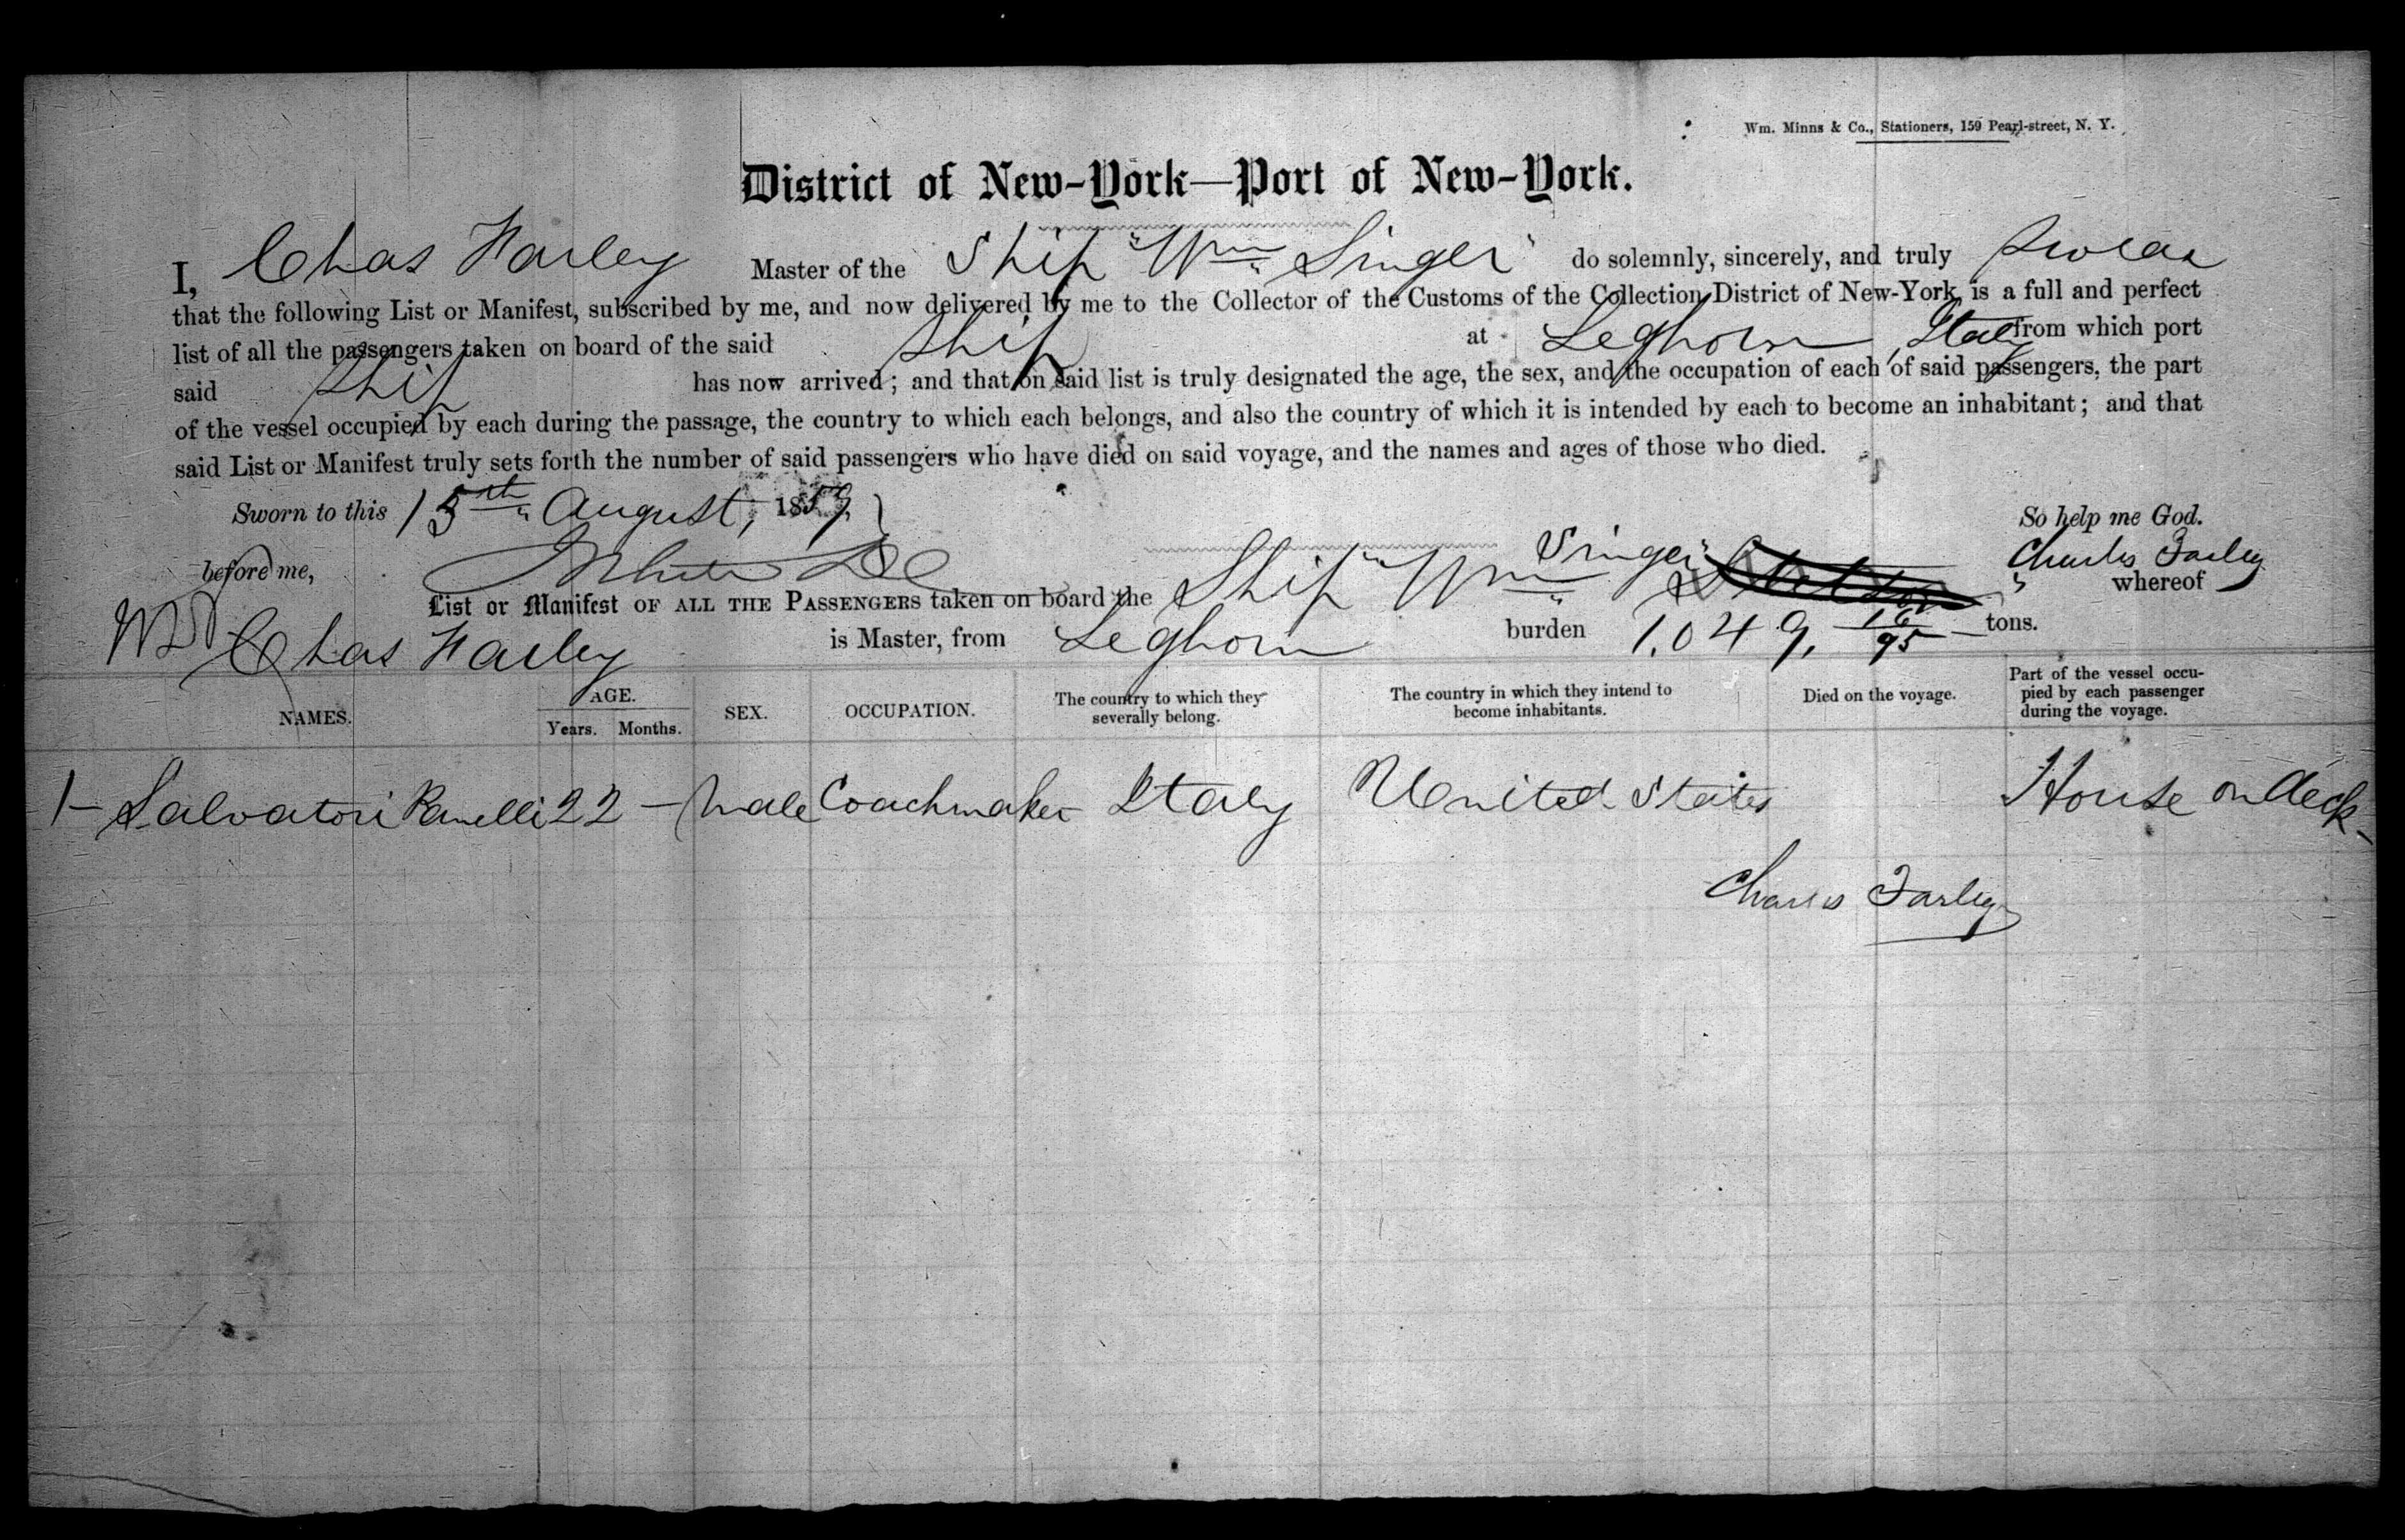 Wm. Minns & Co., Stationers, 159 Pearl-street, N. Y.
District of New-York—Port of New-York.
I, Chas Farley Master of the Ship "Wm Singer" do solemnly, sincerely, and truly swear
that the following List or Manifest, subscribed by me, and now delivered by me to the Collector of the Customs of the Collection District of New-York, is a full and perfect
list of all the passengers taken on board of the said Ship at Leghorn, Italy from which port
said Ship has now arrived; and that on said list is truly designated the age, the sex, and the occupation of each of said passengers, the part
of the vessel occupied by each during the passage, the country to which each belongs, and also the country of which it is intended by each to become an inhabitant; and that
said List or Manifest truly sets forth the number of said passengers who have died on said voyage, and the names and ages of those who died.
Sworn to this 15th August, 1859 So help me God.
before me, Charles Farley
List or Manifest OF ALL THE PASSENGERS taken on board the Ship "Wm Singer" whereof
Chas Farley is Master, from Leghorn burden 1,049, 16/95 tons.
NAMES. AGE. Years. Months. SEX. OCCUPATION. The country to which they severally belong. The country in which they intend to become inhabitants. Died on the voyage. Part of the vessel occupied by each passenger during the voyage.
1- Salvatori Ramelli 22 - Male Coachmaker Italy United States House on deck-
Charles Farley